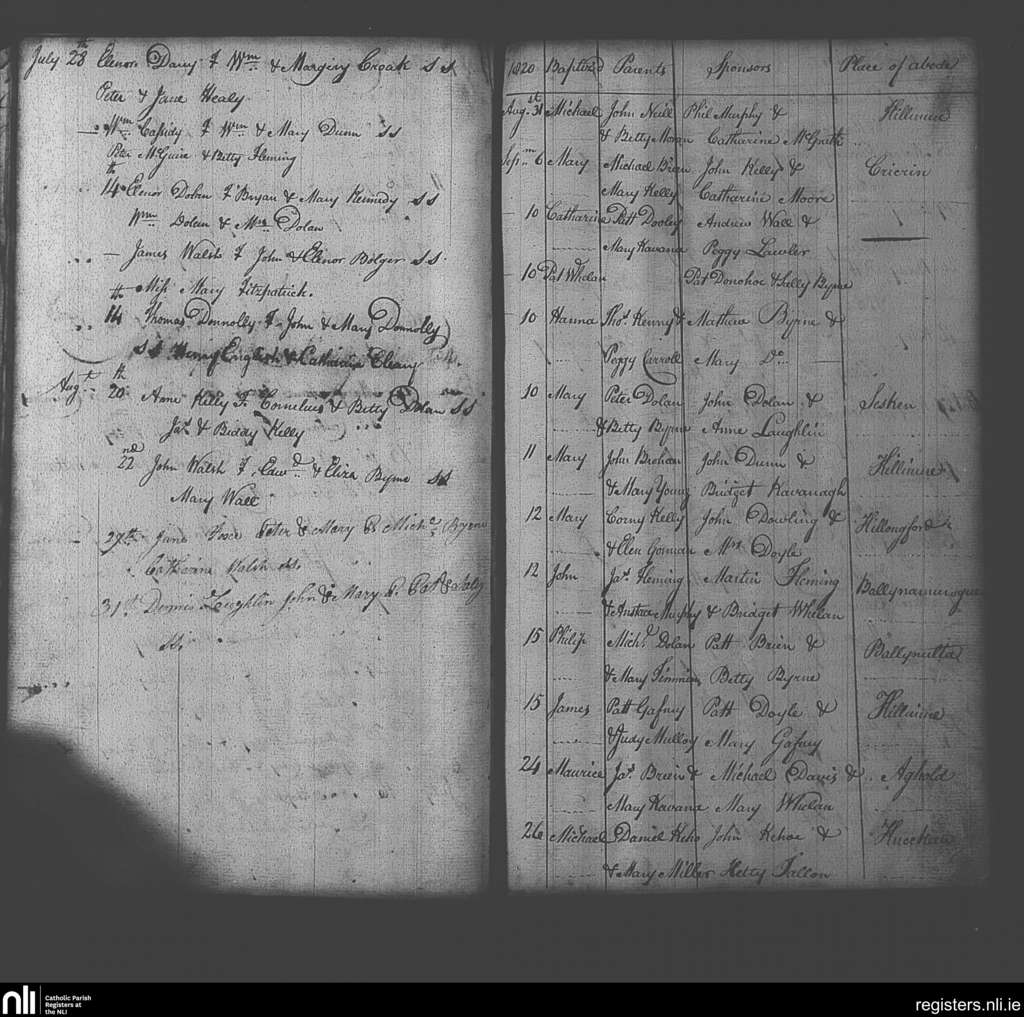 July 28th Elenor Darcy F Wm & Margiry Creak S S
Peter & Jane Healy
— Wm Cassidy F Wm & Mary Dunn SS
Peter McGuire & Betty Fleming
14th Elenor Dolan F Bryan & Mary Kennedy SS
Wm Dolan & Mrs Dolan
— James Walsh F John & Elenor Bolger SS.
Miss Mary Fitzpatrick.
14th Thomas Donnolly F John & Mary Donnolly
SS Henry English & Catharine Cleary
Augt 20th Anne Kelly F. Cornelius & Betty Dolan SS
Jas & Biddy Kelly
22nd John Walsh F. Edwd & Eliza Byrne SS
Mary Wall
27th Jane Peter & Mary Michl Byrne
Catharine Walsh ss.
31st Dennis Loughlin John & Mary Pat &
SS.
1820 Baptized Parents Sponsors Place of abode
Aug. 31st Michael John Neill Phil Murphy & Killinure
& Betty Moran Catharine McGrath
Sepm 6 Mary Michael Brien John Kelly & Cricrin
Mary Kelly Catharine Moore
10 Catharine Patt Dooley Andrew Wall &
Mary Kavana Peggy Lawler
10 Pat Whelan Pat Donohoe & Sally Byrne
10 Hanna Thos Henry & Mathew Byrne &
Peggy Carroll Mary Do
10 Mary Peter Dolan John Dolan & Sesken
& Betty Byrne Anne Laughlin
11 Mary John Brohan John Dunn & Killinure
& Mary Young Bridget Kavanagh
12 Mary Corny Kelly John Dowling & Killongford
& Elen Gorman Mrs Doyle
12 John Jas Fleming Martin Fleming Ballynamurogue
& Anstace Murphy & Bridget Whelan
15 Philip Michl Dolan Patt Brien & Ballynulta
& Mary Timmins Betty Byrne
15 James Patt Gafney Patt Doyle & Killinure
& Judy Mulloy Mary Gafney
24 Maurice Jas Brien & Michael Davis & Aghold
Mary Kavana Mary Whelan
26 Michael Daniel Keho John Kehoe &
& Mary Miller Hetty Fallon
nli Catholic Parish
Registers at
the NLI
registers.nli.ie